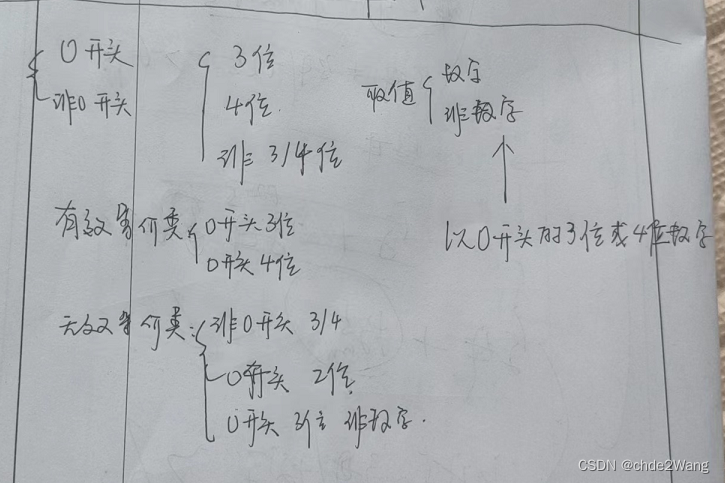 0开头
非0开头
3位
4位.
非3/4位
取值
数字
非数字
以0开头的3位或4位数字
有效等价类
0开头3位
0开头4位
无效等价类:
非0开头 3/4
0开头 2位
0开头 3位 非数字.
CSDN @chde2Wang